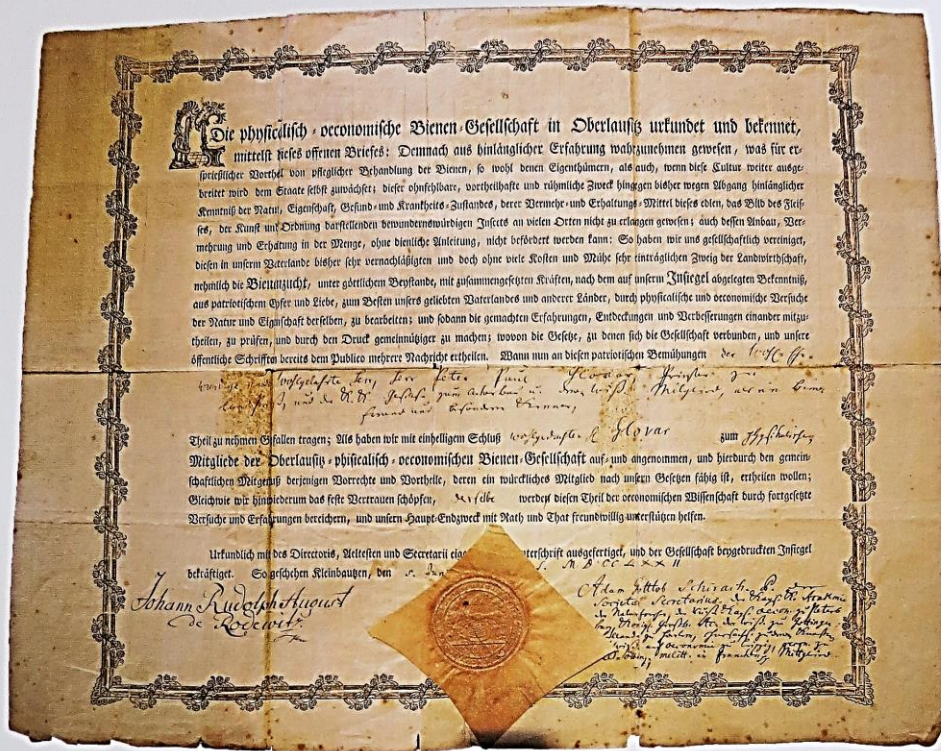 Die physicalisch-oeconomische Bienen-Gesellschaft in Oberlausitz urkundet und bekennet,
mittelst dieses offenen Briefes: Demnach aus hinlänglicher Erfahrung wahrzunehmen gewesen, was für er-
sprießlicher Vortheil von pfleglicher Behandlung der Bienen, so wohl denen Eigenthümern, als auch, wenn diese Cultur weiter ausge-
breitet wird dem Staate selbst zuwächset; dieser ohnfehlbare, vortheilhafte und rühmliche Zweck hingegen bisher wegen Abgang hinlänglicher
Kenntniß der Natur, Eigenschaft, Gesund- und Krankheits-Zustandes, derer Vermehr- und Erhaltungs-Mittel dieses edlen, das Bild des Fleis-
ses, der Kunst und Ordnung darstellenden bewundernswürdigen Insects an vielen Orten nicht zu erlangen gewesen; auch dessen Anbau, Ver-
mehrung und Erhaltung in der Menge, ohne dienliche Anleitung, nicht befördert werden kann: So haben wir uns gesellschaftlich vereiniget,
diesen in unserm Vaterlande bisher sehr vernachläßigten und doch ohne viele Kosten und Mühe sehr einträglichen Zweig der Landwirthschaft,
nehmlich die Bienenzucht, unter göttlichem Beystande, mit zusammengesetzten Kräften, nach dem auf unserm Insiegel abgelegten Bekenntniß,
aus patriotischem Eyfer und Liebe, zum Besten unsers geliebten Vaterlandes und anderer Länder, durch physicalische und oeconomische Versuche
der Natur und Eigenschaft derselben, zu bearbeiten; und sodann die gemachten Erfahrungen, Entdeckungen und Verbesserungen einander mitzu-
theilen, zu prüfen, und durch den Druck gemeinnütziger zu machen; wovon die Gesetze, zu denen sich die Gesellschaft verbunden, und unsere
öffentliche Schriften bereits dem Publico mehrere Nachricht ertheilen. Wann nun an diesen patriotischen Bemühungen der
Herr Peter Paul Glovar Priester
und der Mitglied, 
Theil zu nehmen Gefallen tragen; Als haben wir mit einhelligem Schluß Glovar zum
Mitgliede der Oberlausitz-phisicalisch-oeconomischen Bienen-Gesellschaft auf- und angenommen, und hierdurch den gemein-
schaftlichen Mitgenuß derjenigen Vorrechte und Vortheile, deren ein würckliches Mitglied nach unsern Gesetzen fähig ist, ertheilen wollen;
Gleichwie wir hinwiederum das feste Vertrauen schöpfen, derselbe werden diesen Theil der oeconomischen Wissenschaft durch fortgesetzte
Versuche und Erfahrungen bereichern, und unsern Haupt-Endzweck mit Rath und That freundwillig unterstützen helfen.
Urkundlich mit des Directoris, Aeltesten und Secretarii unterschrift ausgefertiget, und der Gesellschaft beygedruckten Insiegel
bekräftiget. So geschehen Kleinbautzen, den MDCCLXXII
Johann Rudolph August
de Rodewitz
Adam Gottlob Schirach, P. der
Societät Secretarius, der Akademie